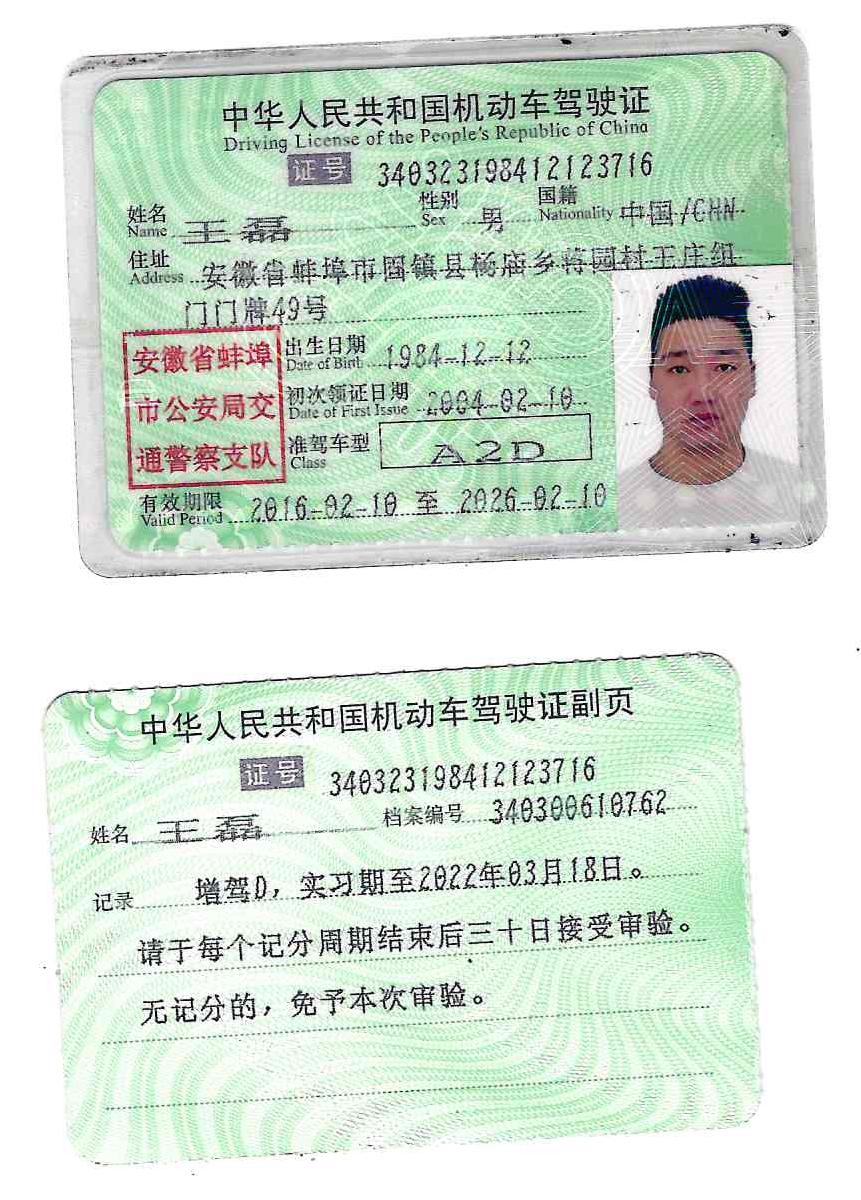 中华人民共和国机动车驾驶证
Driving License of the People's Republic of China
证号 340323198412123716
姓名 Name 王磊 性别 Sex 男 国籍 Nationality 中国/CHN
住址 Address 安徽省蚌埠市固镇县杨庙乡蒋园村王庄组
门门牌49号
安徽省蚌埠
市公安局交
通警察支队
出生日期 Date of Birth 1984-12-12
初次领证日期 Date of First Issue 2004-02-10
准驾车型 Class A2D
有效期限 Valid Period 2016-02-10 至 2026-02-10
中华人民共和国机动车驾驶证副页
证号 340323198412123716
姓名 王磊 档案编号 340300610762
记录 增驾D，实习期至2022年03月18日。
请于每个记分周期结束后三十日接受审验。
无记分的，免予本次审验。